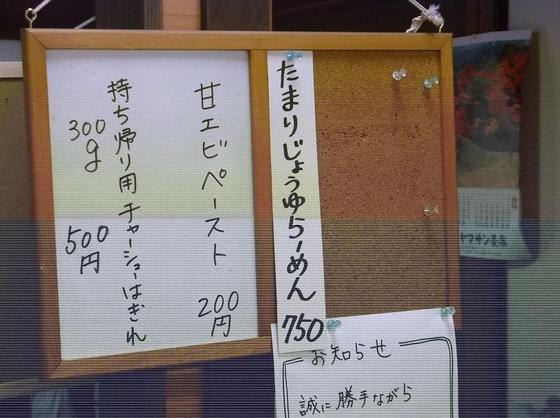 たまりじょうゆらーめん 750
甘エビペースト 200円
持ち帰り用チャーシューはぎれ
300g 500円
お知らせ
誠に勝手ながら